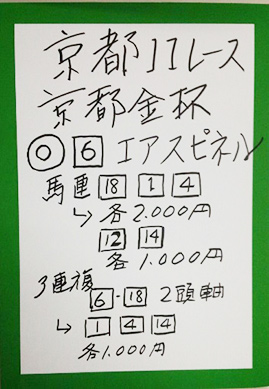 京都11レース
京都金杯
◎ 6 エアスピネル
馬連 18 1 4
↳ 各2.000円
12 14
各1.000円
3連複
6-18 2頭軸
↳ 1 4 14
各1.000円